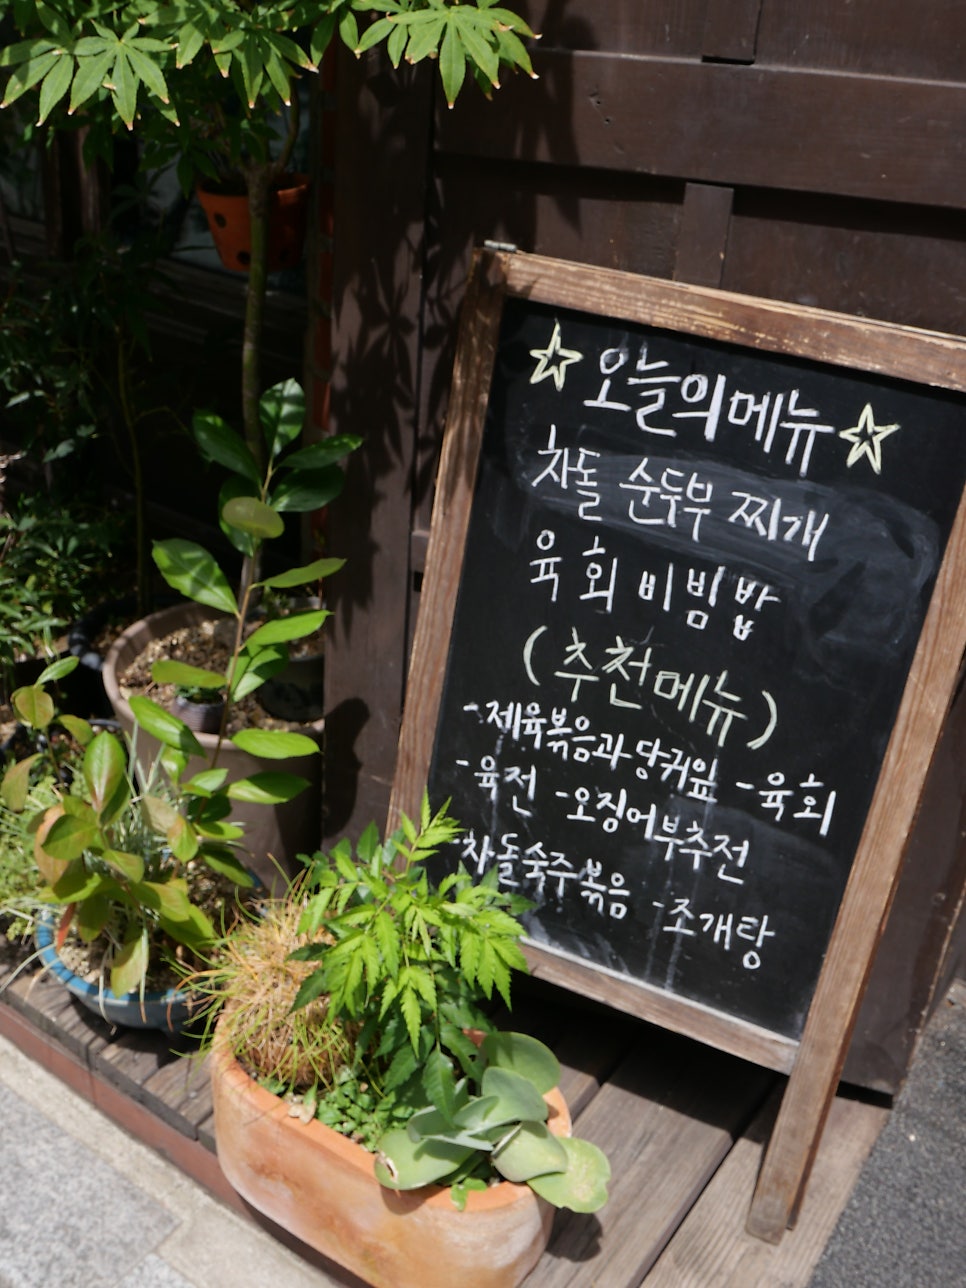 ☆ 오늘의메뉴 ☆
차돌 순두부 찌개
육회 비빔밥
(추천메뉴)
-제육볶음과 당귀잎 -육회
-육전 -오징어부추전
-차돌숙주볶음 -조개탕